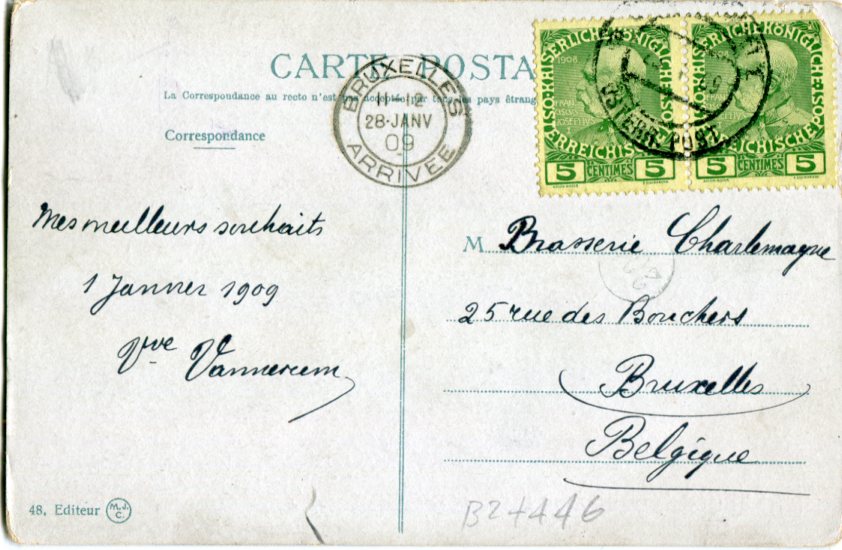 CARTE POSTA
La Correspondance au recto n'est pas acceptée par tous les pays étrang
Correspondance
BRUXELLES
11-12
28·JANV
09
ARRIVEE
KAISERLICHE KÖNIGLICHE ÖSTERREICHISCHE POST
1908
5 CENTIMES 5
KAISERLICHE KÖNIGLICHE ÖSTERREICHISCHE POST
5 CENTIMES 5
ÖSTERR. POST.
Mes meilleurs souhaits
1 Janvier 1909
Vve Vannerem
M Brasserie Charlemagne
25 rue des Bouchers
Bruxelles
Belgique
48, Editeur M.J.C.
B27446